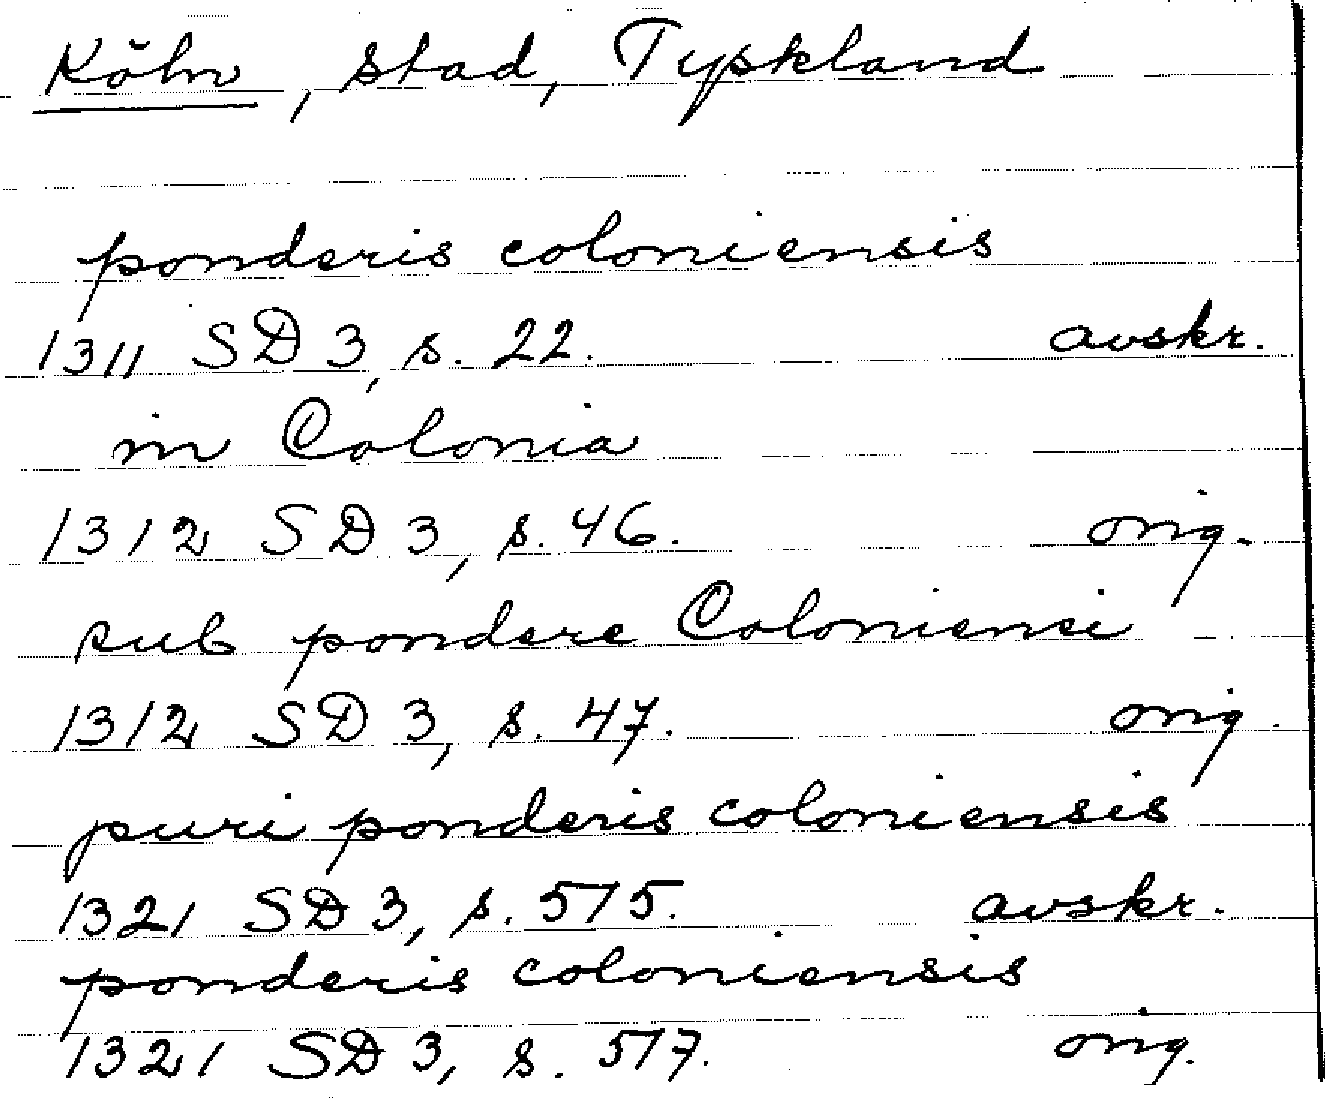 Köln, stad, Tyskland
ponderis coloniensis
1311 SD 3, s. 22. avskr.
in Colonia
1312 SD 3, s. 46. orig.
sub pondere Coloniensi
1312 SD 3, s. 47. orig.
puri ponderis coloniensis
1321 SD 3, s. 515. avskr.
ponderis coloniensis
1321 SD 3, s. 517. orig.